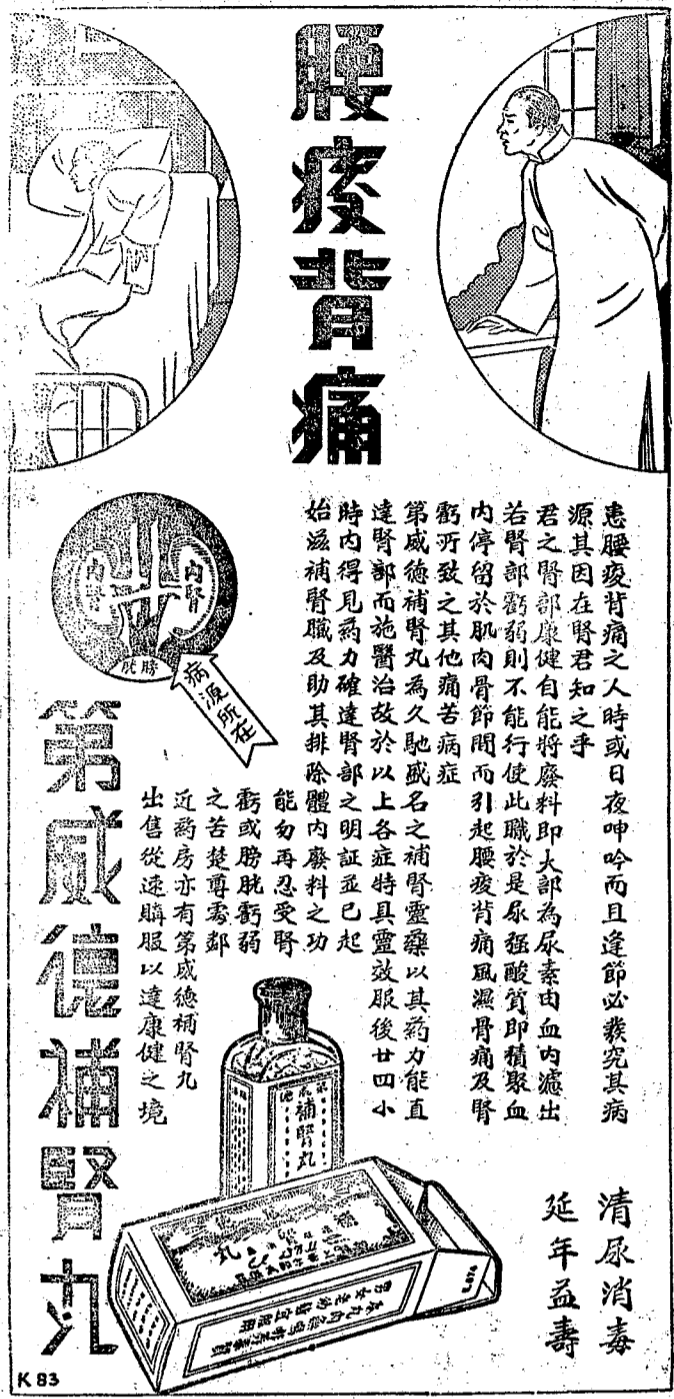 腰痠背痛
患腰痠背痛之人時或日夜呻吟而且逢節必發究其病
源其因在腎君知之乎
君之腎部康健自能將廢料即大部為尿素由血內濾出
若腎部虧弱則不能行使此職於是尿强酸質即積聚血
内停留於肌肉骨節間而引起腰痠背痛風濕骨痛及腎
虧所致之其他痛苦病症
第威德補腎丸為久馳盛名之補腎靈藥以其药力能直
達腎部而施醫治故於以上各症特具靈效服後廿四小
時内得見药力確達腎部之明証並已起
始滋補腎臟及助其排除體内廢料之功
能勿再忍受腎
虧或膀胱虧弱
之苦楚尊處鄰
近药房亦有第威德補腎丸
出售從速購服以達康健之境
清尿消毒
延年益壽
内腎
内腎
膀胱
病源所在
第威德補腎丸
補腎丸
丸
K 83